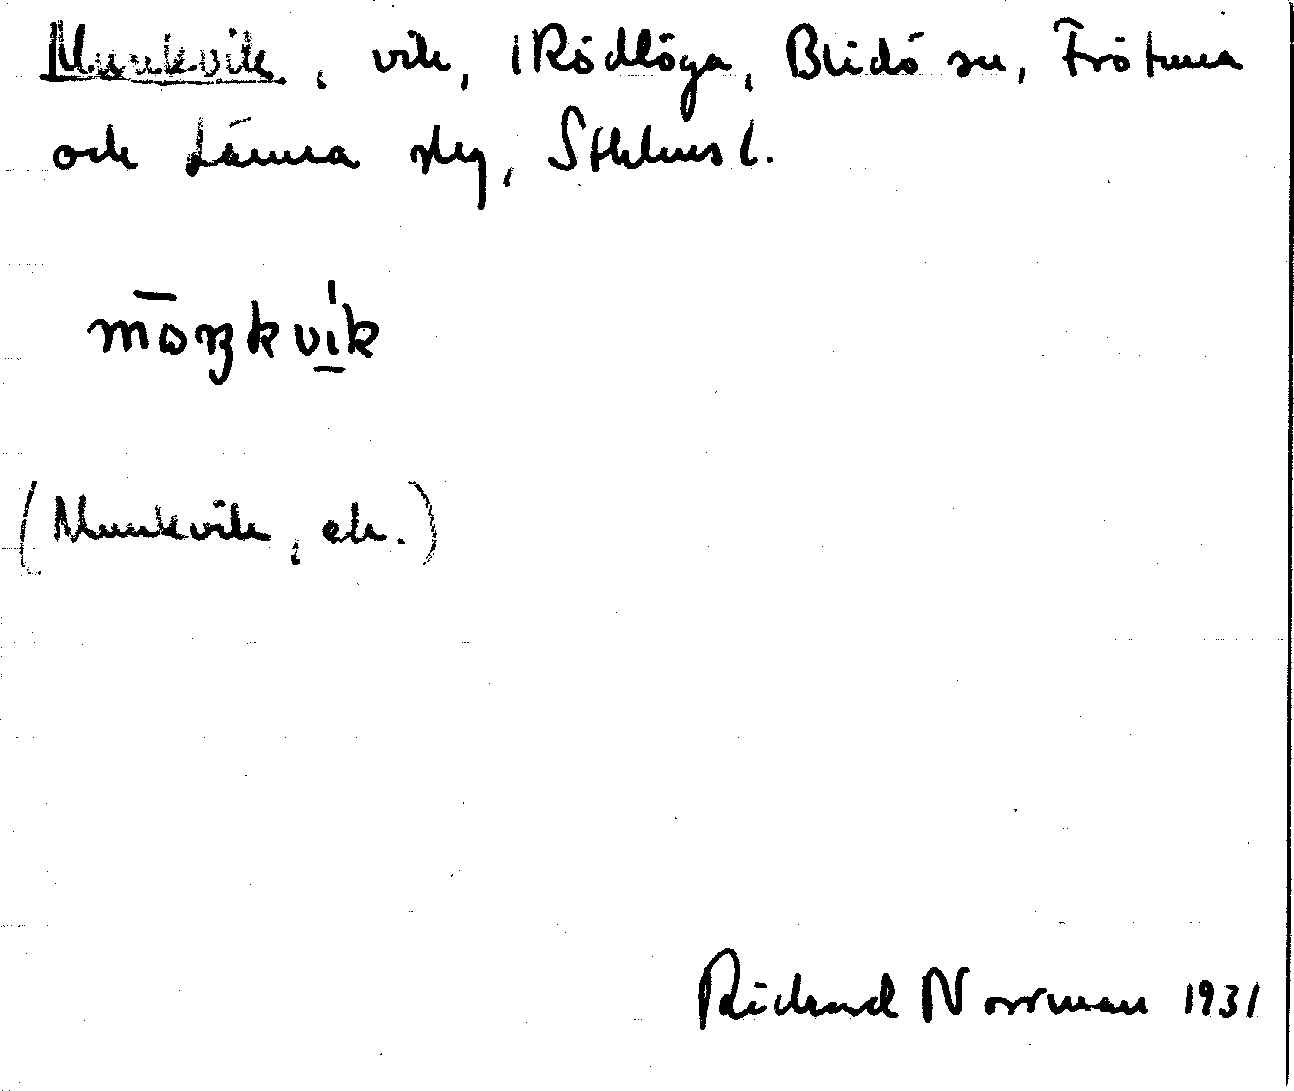 Munkvik, vik, Rödlöga, Blidö sn, Frötuna
och Länna slg, Sthlms l.
mōŋkvi̱k
(Munkvik, ek.)
Richard Norrman 1931